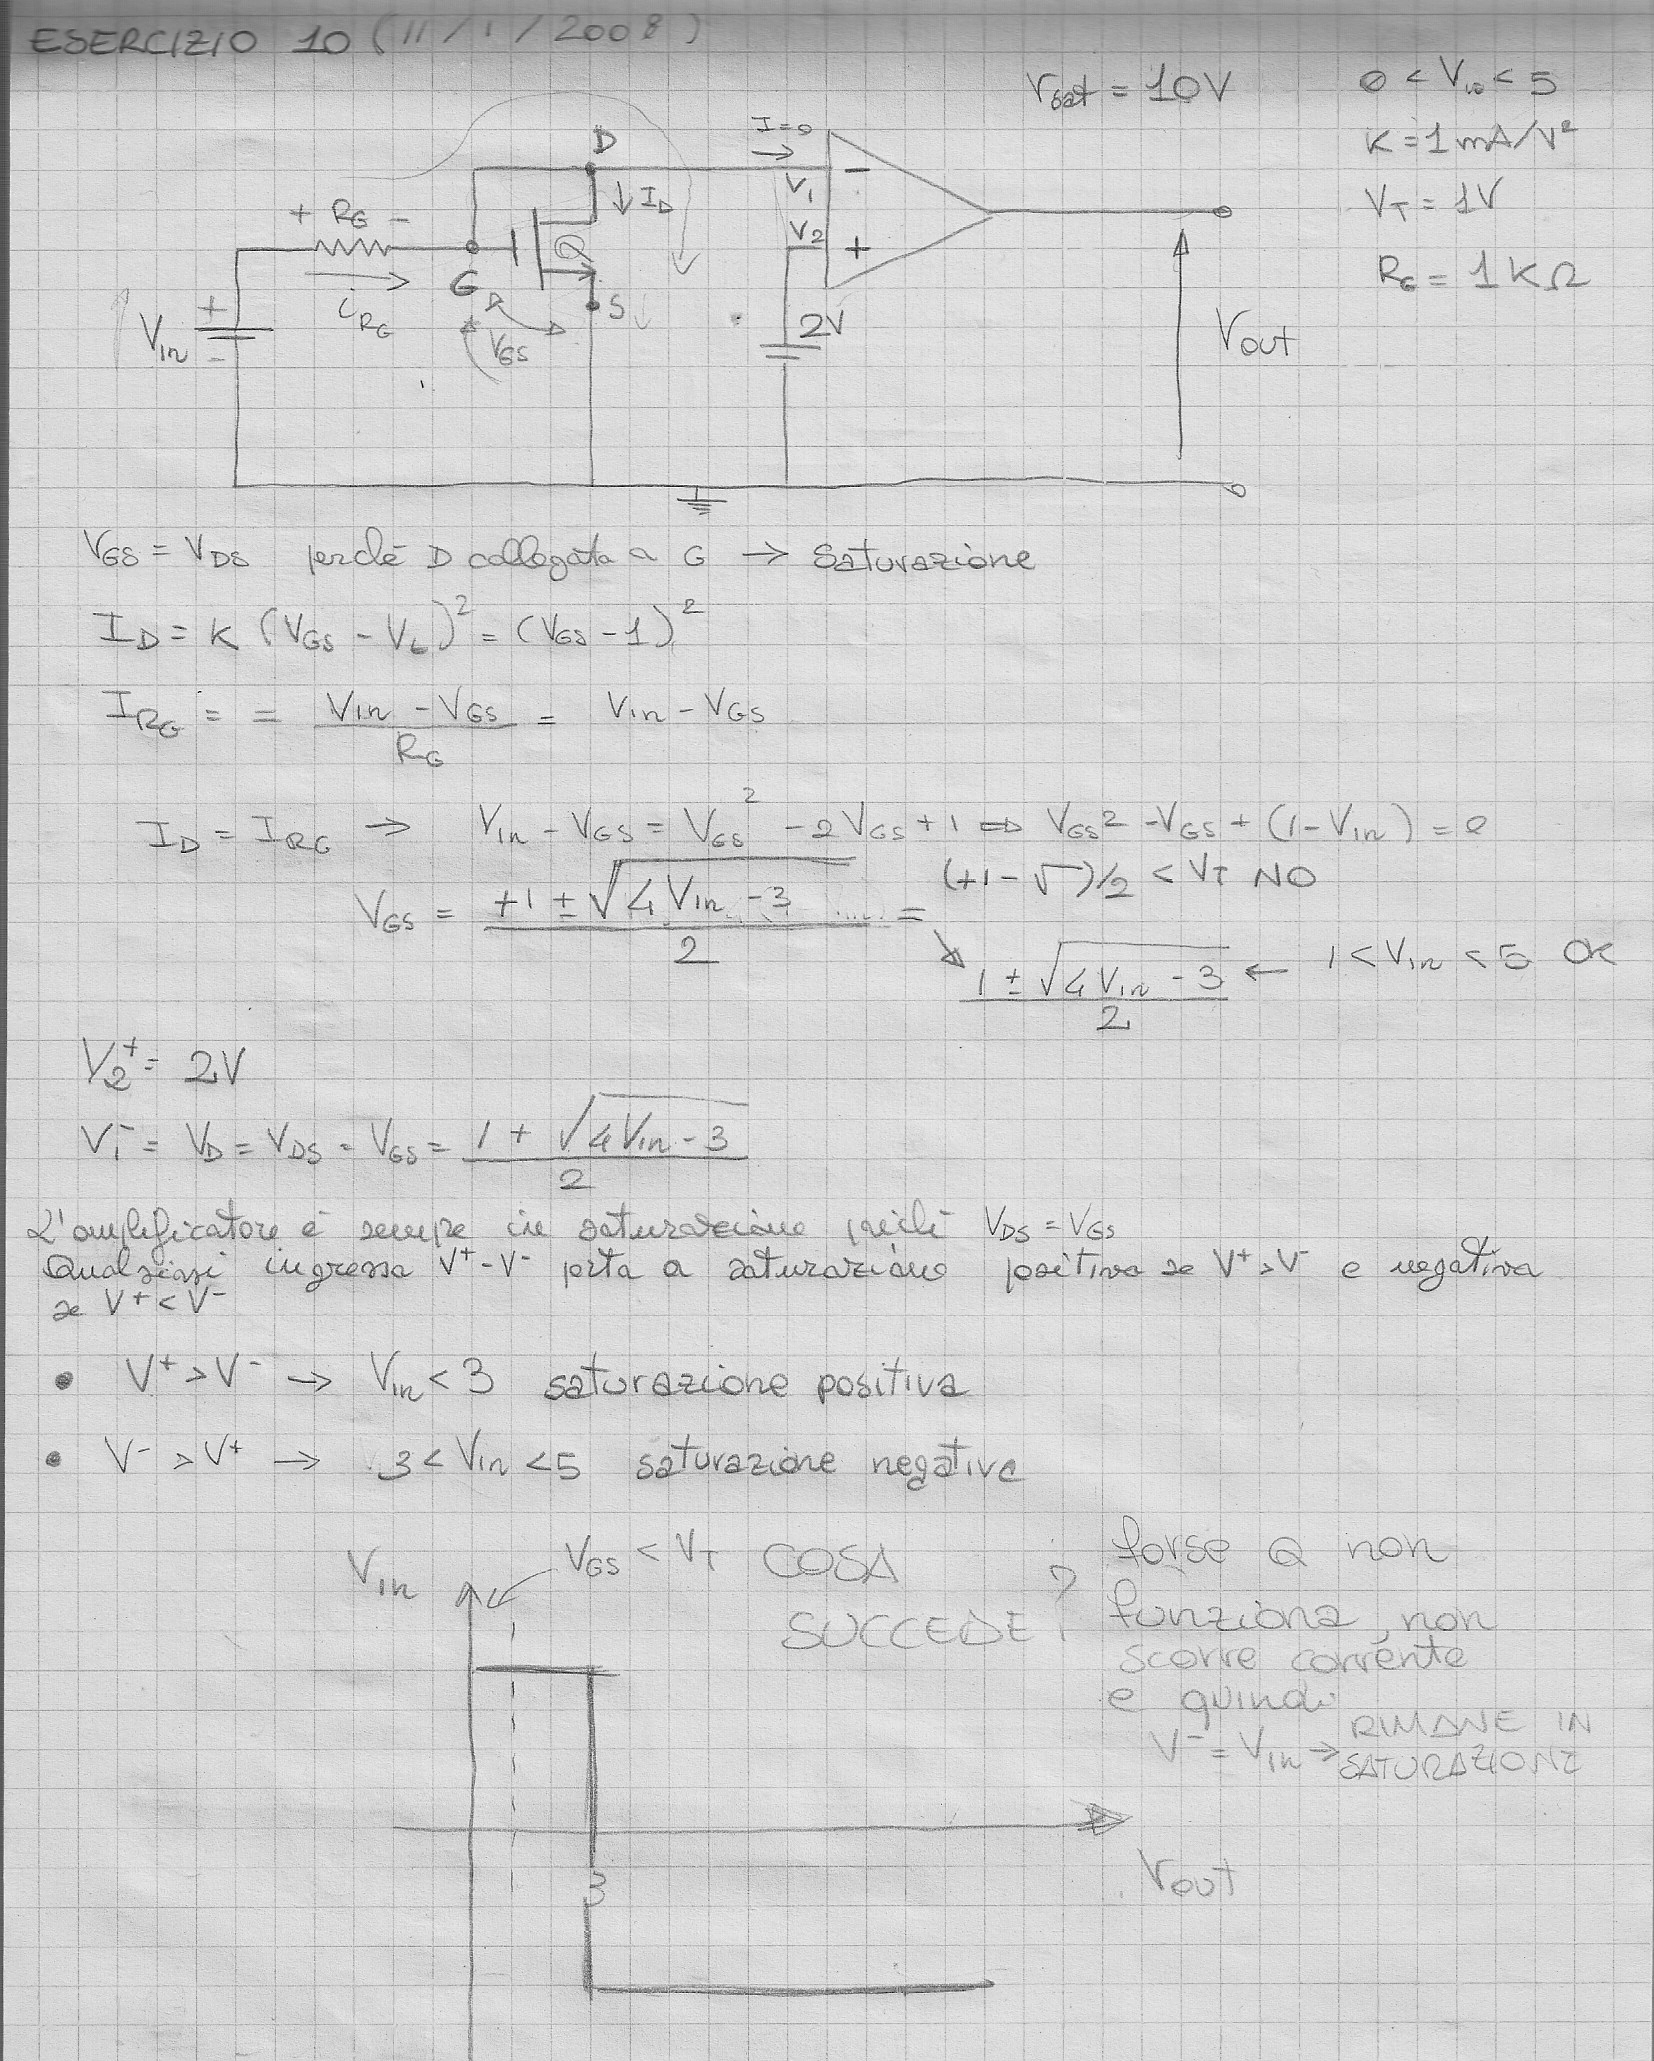 ESERCIZIO 10 (11/1/2008)
Vsat = 10V
0 < Vin < 5
K = 1 mA/V²
VT = 1V
RG = 1KΩ
I=0
D
V1
−
ID
+ RG −
V2
+
Q
G
S
iRG
VGS
+
Vin
−
2V
Vout
VGS = VDS perché D collegata a G → Saturazione
ID = K (VGS - Vt)² = (VGS - 1)²
IRG = = (Vin - VGS)/RG = Vin - VGS
ID = IRG → Vin - VGS = VGS² - 2VGS + 1 => VGS² - VGS + (1 - Vin) = 0
(+1-√)/2 < VT NO
VGS = (+1 ± √(4Vin - 3))/2 =
(1 ± √(4Vin - 3))/2 ← 1 < Vin < 5 OK
V2⁺ = 2V
V1⁻ = VD = VDS = VGS = (1 + √(4Vin - 3))/2
L'amplificatore è sempre in saturazione perché VDS = VGS
Qualsiasi ingresso V⁺-V⁻ porta a saturazione positiva se V⁺>V⁻ e negativa
se V⁺<V⁻
• V⁺>V⁻ → Vin<3 saturazione positiva
• V⁻>V⁺ → 3<Vin<5 saturazione negativa
Vin
VGS < VT COSA
SUCCEDE?
forse Q non
funziona, non
scorre corrente
e quindi
V⁻ = Vin → RIMANE IN
SATURAZIONE
Vout
3